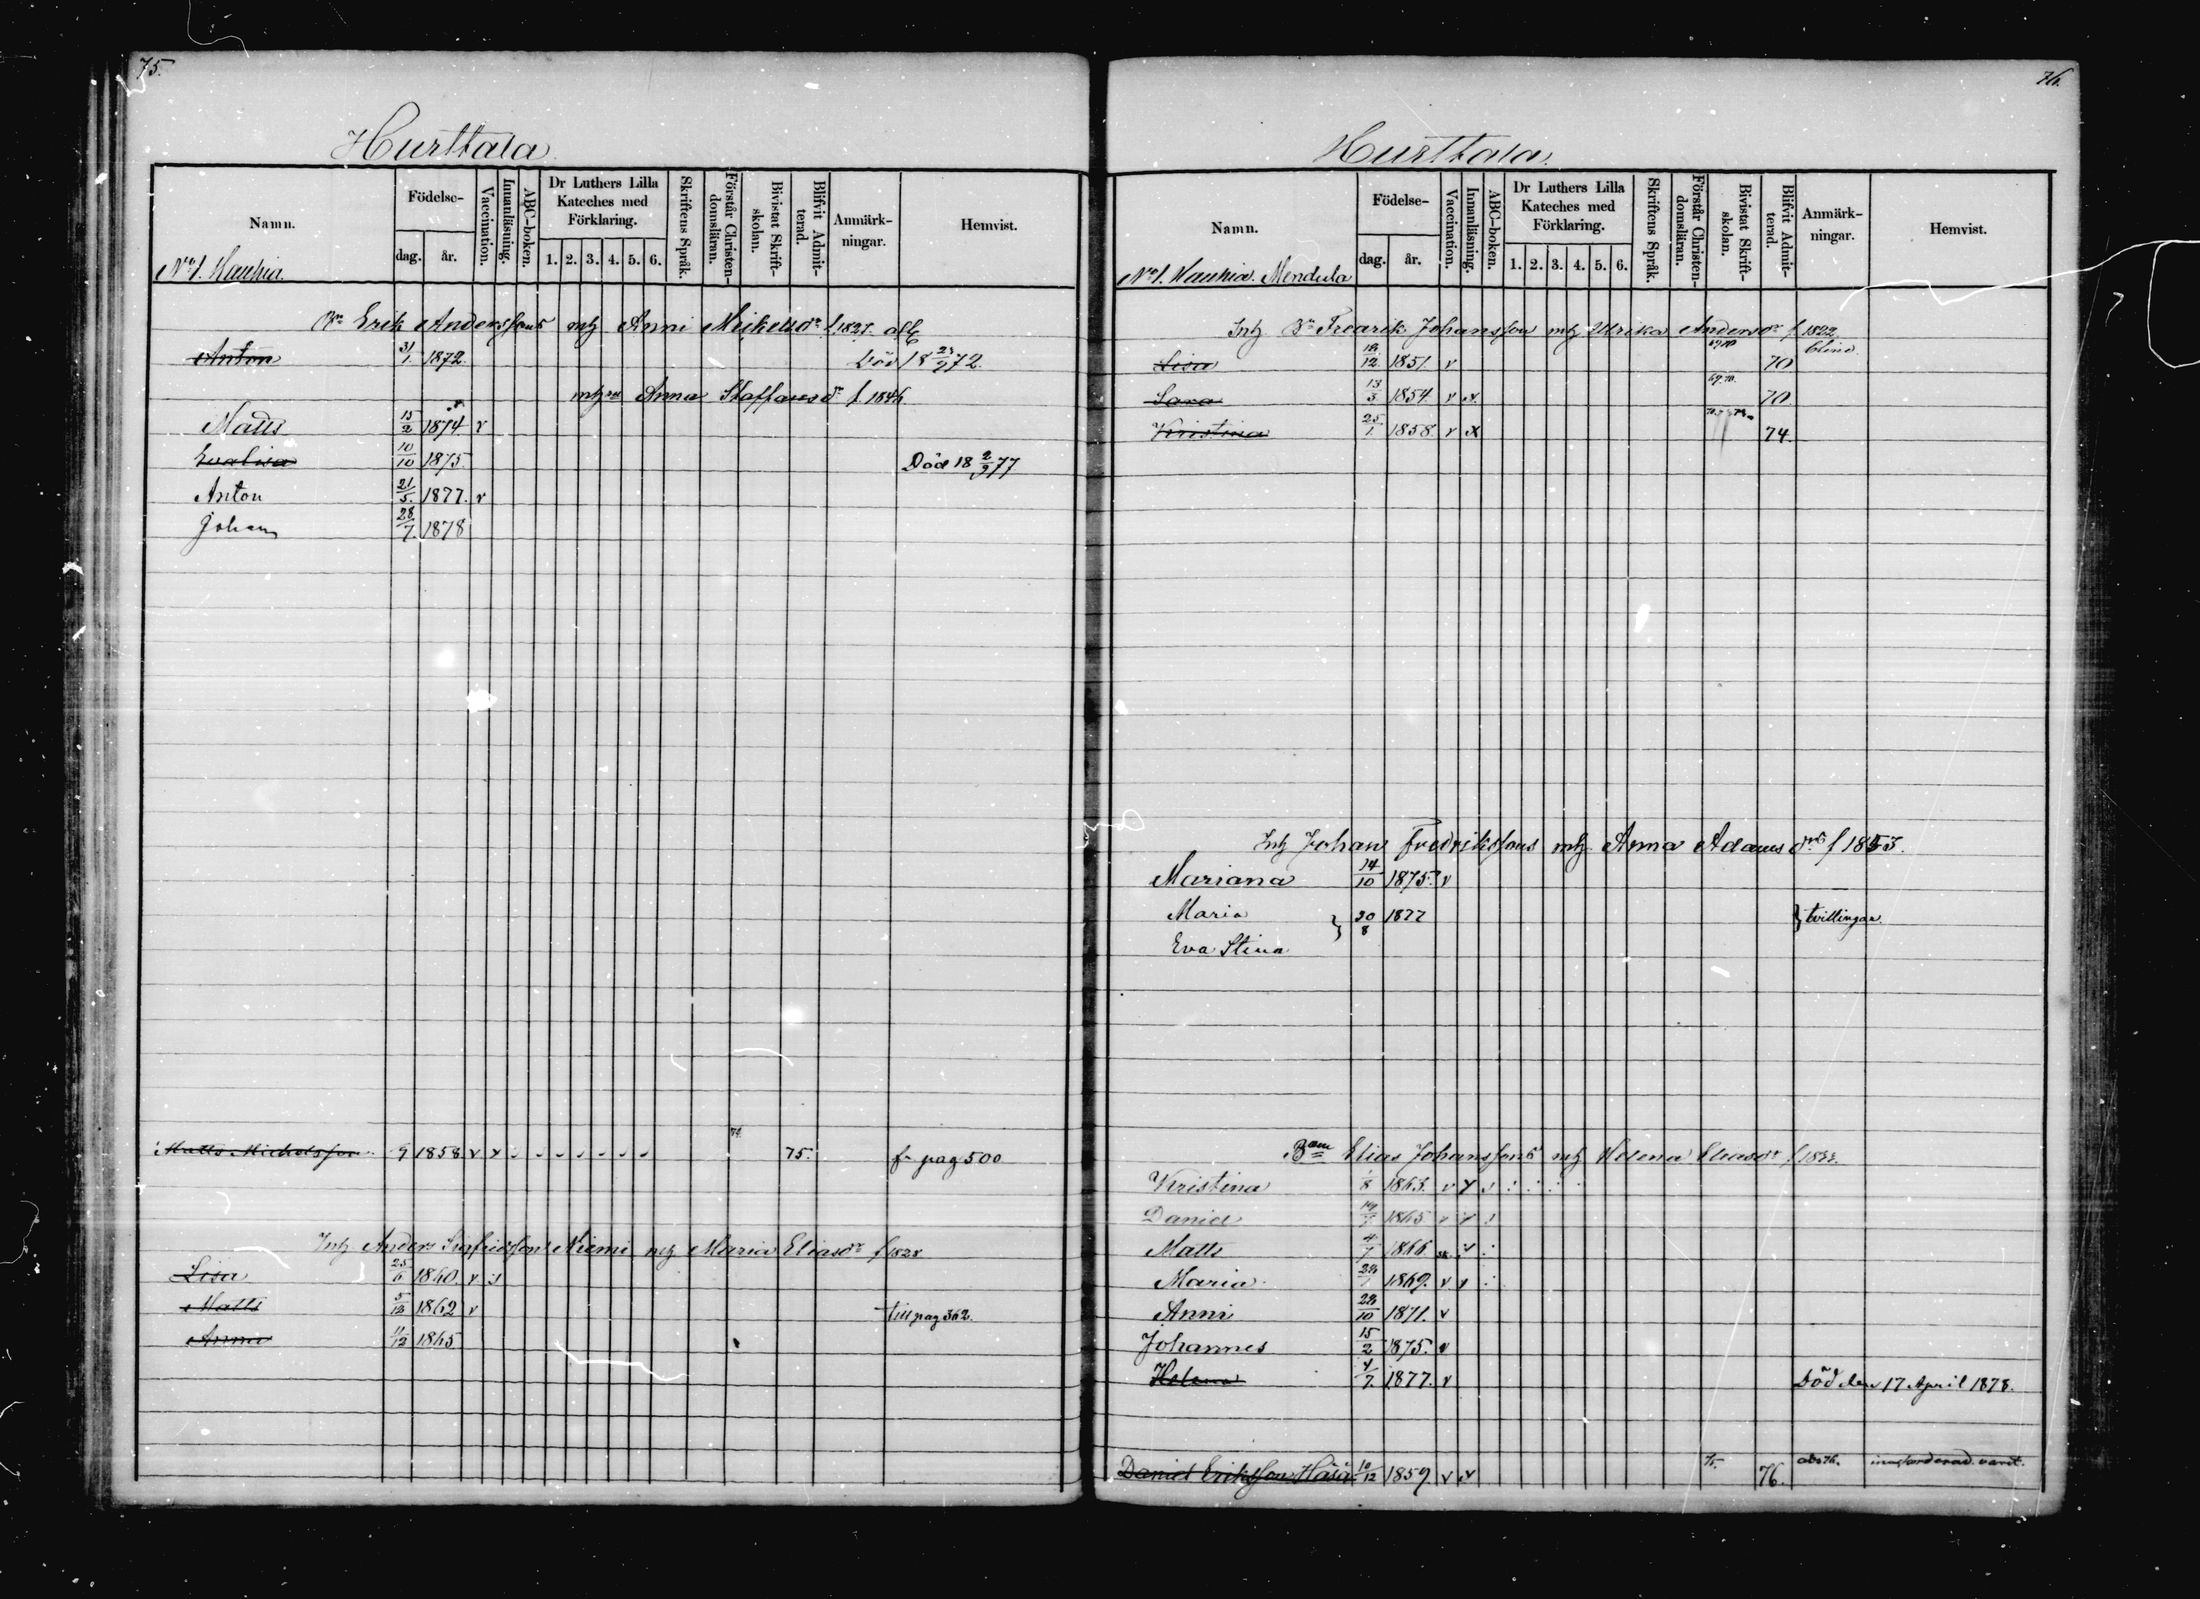 75.
Hurttala
Namn.
Födelse-
dag. år.
Vaccination.
Innanläsning.
ABC-boken.
Dr Luthers Lilla Kateches med Förklaring.
1. 2. 3. 4. 5. 6.
Skriftens Språk.
Förstår Christendomsläran.
Bivistat Skriftskolan.
Blifvit Admitterad.
Anmärkningar.
Hemvist.
No 1. Hauhia
Bn Erik Anderssons mh Anni Mickelsdr f. 1827.
Anton 31/1. 1872. Död 18 23/9 72.
Anna Staffansdr f. 1846.
Matts 15/2 1874. v
Evalisa 10/10 1875. Död 18 2/9 77
Anton 21/5. 1877. v
Johan 28/7. 1878
Matts Michelsson 9 1858 v v 74 75. fr pag 500
Inh Anders Sigfridssons Niemi mh Maria Eliasdr f 1828
Lisa 25/6 1860. v
Matts 5/12 1862 v till pag 362.
Anna 11/12 1865
76.
Hurttala.
Namn.
Födelse-
dag. år.
Vaccination.
Innanläsning.
ABC-boken.
Dr Luthers Lilla Kateches med Förklaring.
1. 2. 3. 4. 5. 6.
Skriftens Språk.
Förstår Christendomsläran.
Bivistat Skriftskolan.
Blifvit Admitterad.
Anmärkningar.
Hemvist.
No 1. Hauhia. Mendula
Inh Bn Fredrik Johansson mh Ulrika Andersdr f 1822
Lisa 1851. v 69.70 70 blind.
Sara 13/3 1854. v x 69.70. 70.
Kristina 25/1. 1858. v x 74.
Inh Johan Fredrikssons mh Anna Adamsdr f 1853.
Mariana 14/10 1875. v
Maria } 20/8 1877 } tvillingar.
Eva Stina
Elias Johanssons mh Helena Eliasdr
Kristina 1863. v
Daniel 1865 v
Matts 4/7 1866.
Maria 1869. v v
Anni 1871. v
Johannes 15/2 1875. v
Helena 4/7. 1877. v Död den 17 April 1878.
Daniel Eriksson Häsä 10/12 1859. v 75. 76.